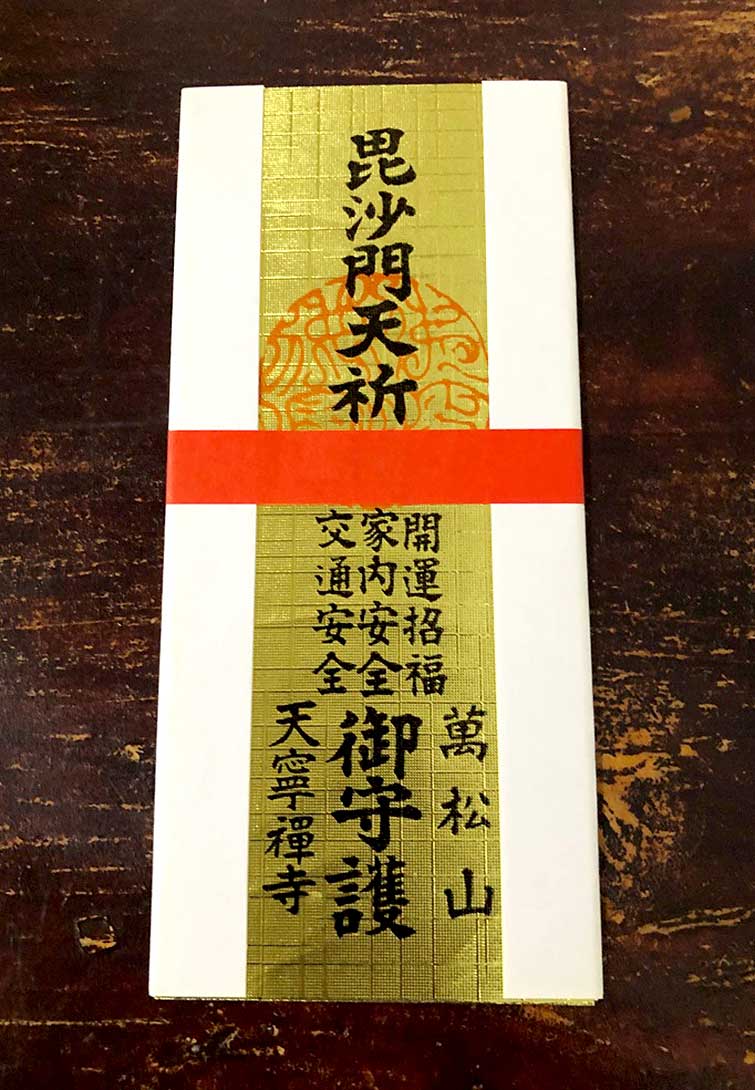 毘沙門天祈
開運招福
家内安全
交通安全
萬松山
御守護
天寧禪寺